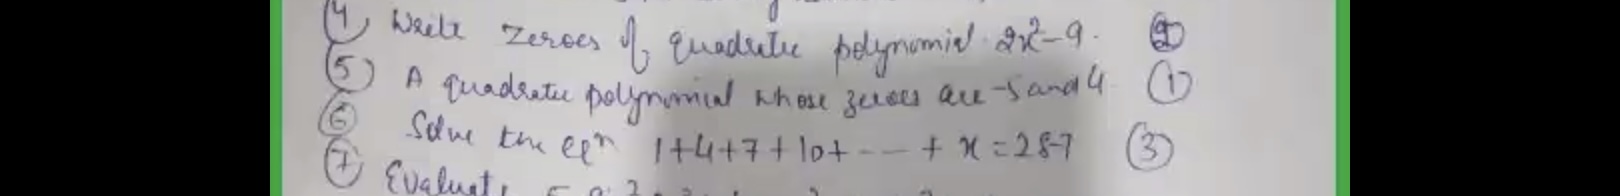 (4) Write zeroes of quadratic polynomial 2x²-9. (2)
(5) A quadratic polynomial whose zeroes are -5 and 4 (1)
(6) Solve the eqⁿ 1+4+7+10+ --- + x = 287 (3)
(7) Evaluate